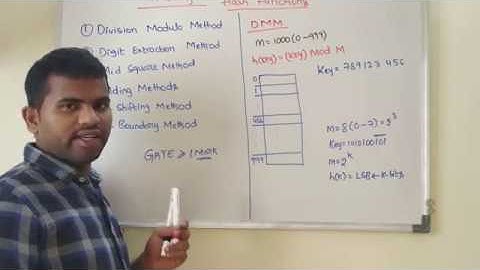 Hash Functions
① Division Modulo Method
② Digit Extraction Method
Mid Square Method
Folding Methods
Shifting Method
Boundary Method
GATE ⩾ 1 Mark
DMM
M=1000(0-999)
h(key)=(key) Mod M
Key = 789123 456
0
1
456
999
M=8(0-7)=2³
Key=1010100101
M=2ᵏ
h(k)= LSB ← k-bits